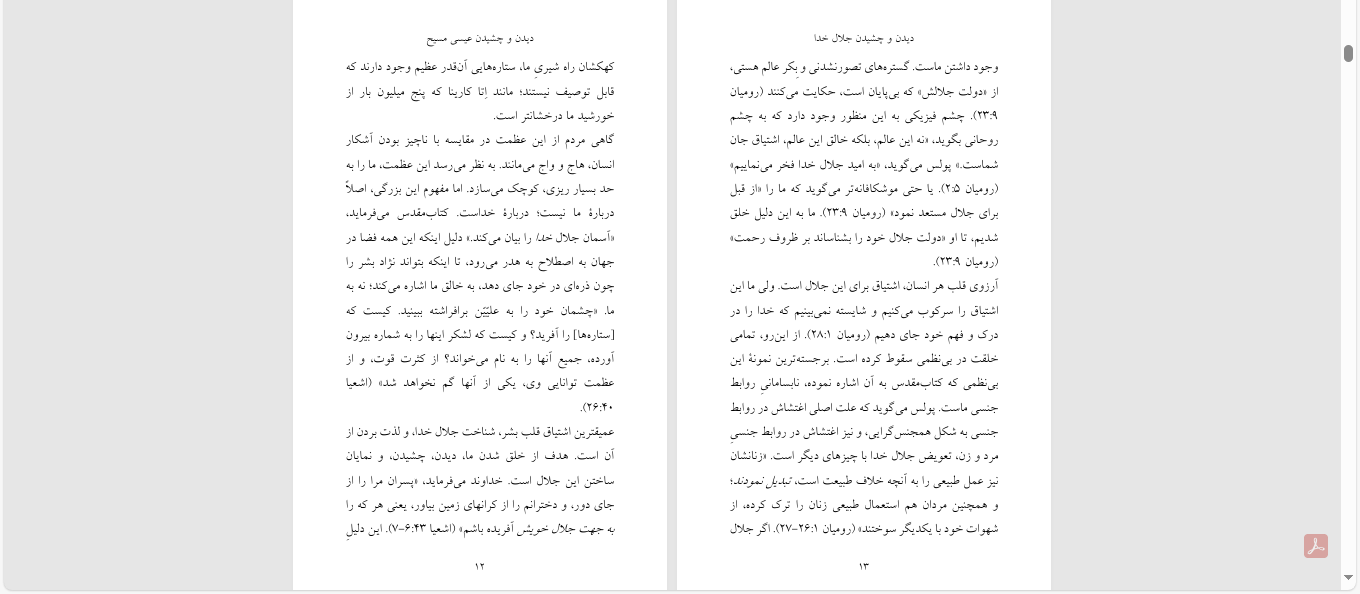 دیدن و چشیدن عیسی مسیح
کهکشان راه شیریِ ما، ستاره‌هایی آن‌قدر عظیم وجود دارند که
قابل توصیف نیستند؛ مانند اِتا کارینا که پنج میلیون بار از
خورشید ما درخشانتر است.
گاهی مردم از این عظمت در مقایسه با ناچیز بودن آشکار
انسان، هاج و واج می‌مانند. به نظر می‌رسد این عظمت، ما را به
حد بسیار ریزی، کوچک می‌سازد. اما مفهوم این بزرگی، اصلاً
دربارهٔ ما نیست؛ دربارهٔ خداست. کتاب‌مقدس می‌فرماید،
«آسمان جلال خدا را بیان می‌کند.» دلیل اینکه این همه فضا در
جهان به اصطلاح به هدر می‌رود، تا اینکه بتواند نژاد بشر را
چون ذره‌ای در خود جای دهد، به خالق ما اشاره می‌کند؛ نه به
ما. «چشمان خود را به علیّیّن برافراشته ببینید. کیست که
[ستاره‌ها] را آفرید؟ و کیست که لشکر اینها را به شماره بیرون
آورده، جمیع آنها را به نام می‌خواند؟ از کثرت قوت، و از
عظمت توانایی وی، یکی از آنها گم نخواهد شد» (اشعیا
۲۶:۴۰).
عمیقترین اشتیاق قلب بشر، شناخت جلال خدا، و لذت بردن از
آن است. هدف از خلق شدن ما، دیدن، چشیدن، و نمایان
ساختن این جلال است. خداوند می‌فرماید، «پسران مرا را از
جای دور، و دخترانم را از کرانهای زمین بیاور، یعنی هر که را
به جهت جلال خویش آفریده باشم» (اشعیا ۶:۴۳–۷). این دلیلِ
۱۲
دیدن و چشیدن جلال خدا
وجود داشتن ماست. گستره‌های تصورنشدنی و بِکر عالم هستی،
از «دولت جلالش» که بی‌پایان است، حکایت می‌کنند (رومیان
۲۳:۹). چشم فیزیکی به این منظور وجود دارد که به چشم
روحانی بگوید، «نه این عالم، بلکه خالق این عالم، اشتیاق جان
شماست.» پولس می‌گوید، «به امید جلال خدا فخر می‌نماییم»
(رومیان ۲:۵). یا حتی موشکافانه‌تر می‌گوید که ما را «از قبل
برای جلال مستعد نمود» (رومیان ۲۳:۹). ما به این دلیل خلق
شدیم، تا او «دولت جلال خود را بشناساند بر ظروف رحمت»
(رومیان ۲۳:۹).
آرزوی قلب هر انسان، اشتیاق برای این جلال است. ولی ما این
اشتیاق را سرکوب می‌کنیم و شایسته نمی‌بینیم که خدا را در
درک و فهم خود جای دهیم (رومیان ۲۸:۱). از این‌رو، تمامی
خلقت در بی‌نظمی سقوط کرده است. برجسته‌ترین نمونهٔ این
بی‌نظمی که کتاب‌مقدس به آن اشاره نموده، نابسامانیِ روابط
جنسی ماست. پولس می‌گوید که علت اصلی اغتشاش در روابط
جنسی به شکل همجنس‌گرایی، و نیز اغتشاش در روابط جنسیِ
مرد و زن، تعویض جلال خدا با چیزهای دیگر است. «زنانشان
نیز عمل طبیعی را به آنچه خلاف طبیعت است، تبدیل نمودند؛
و همچنین مردان هم استعمال طبیعی زنان را ترک کرده، از
شهوات خود با یکدیگر سوختند» (رومیان ۲۶:۱–۲۷). اگر جلال
۱۳